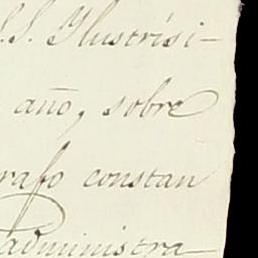 S.S. Ilustrísi-
año, sobre
rafo constan
administra-